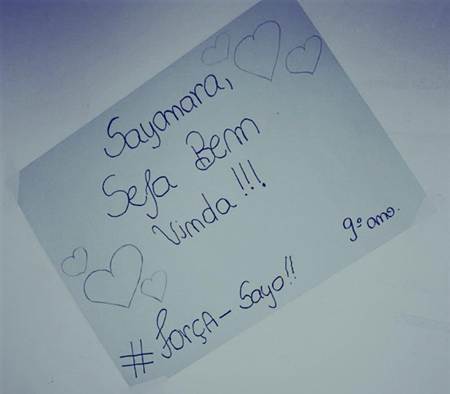 Sayonara,
Seja Bem
Vinda!!!
9º ano.
#Força-Sayo!!